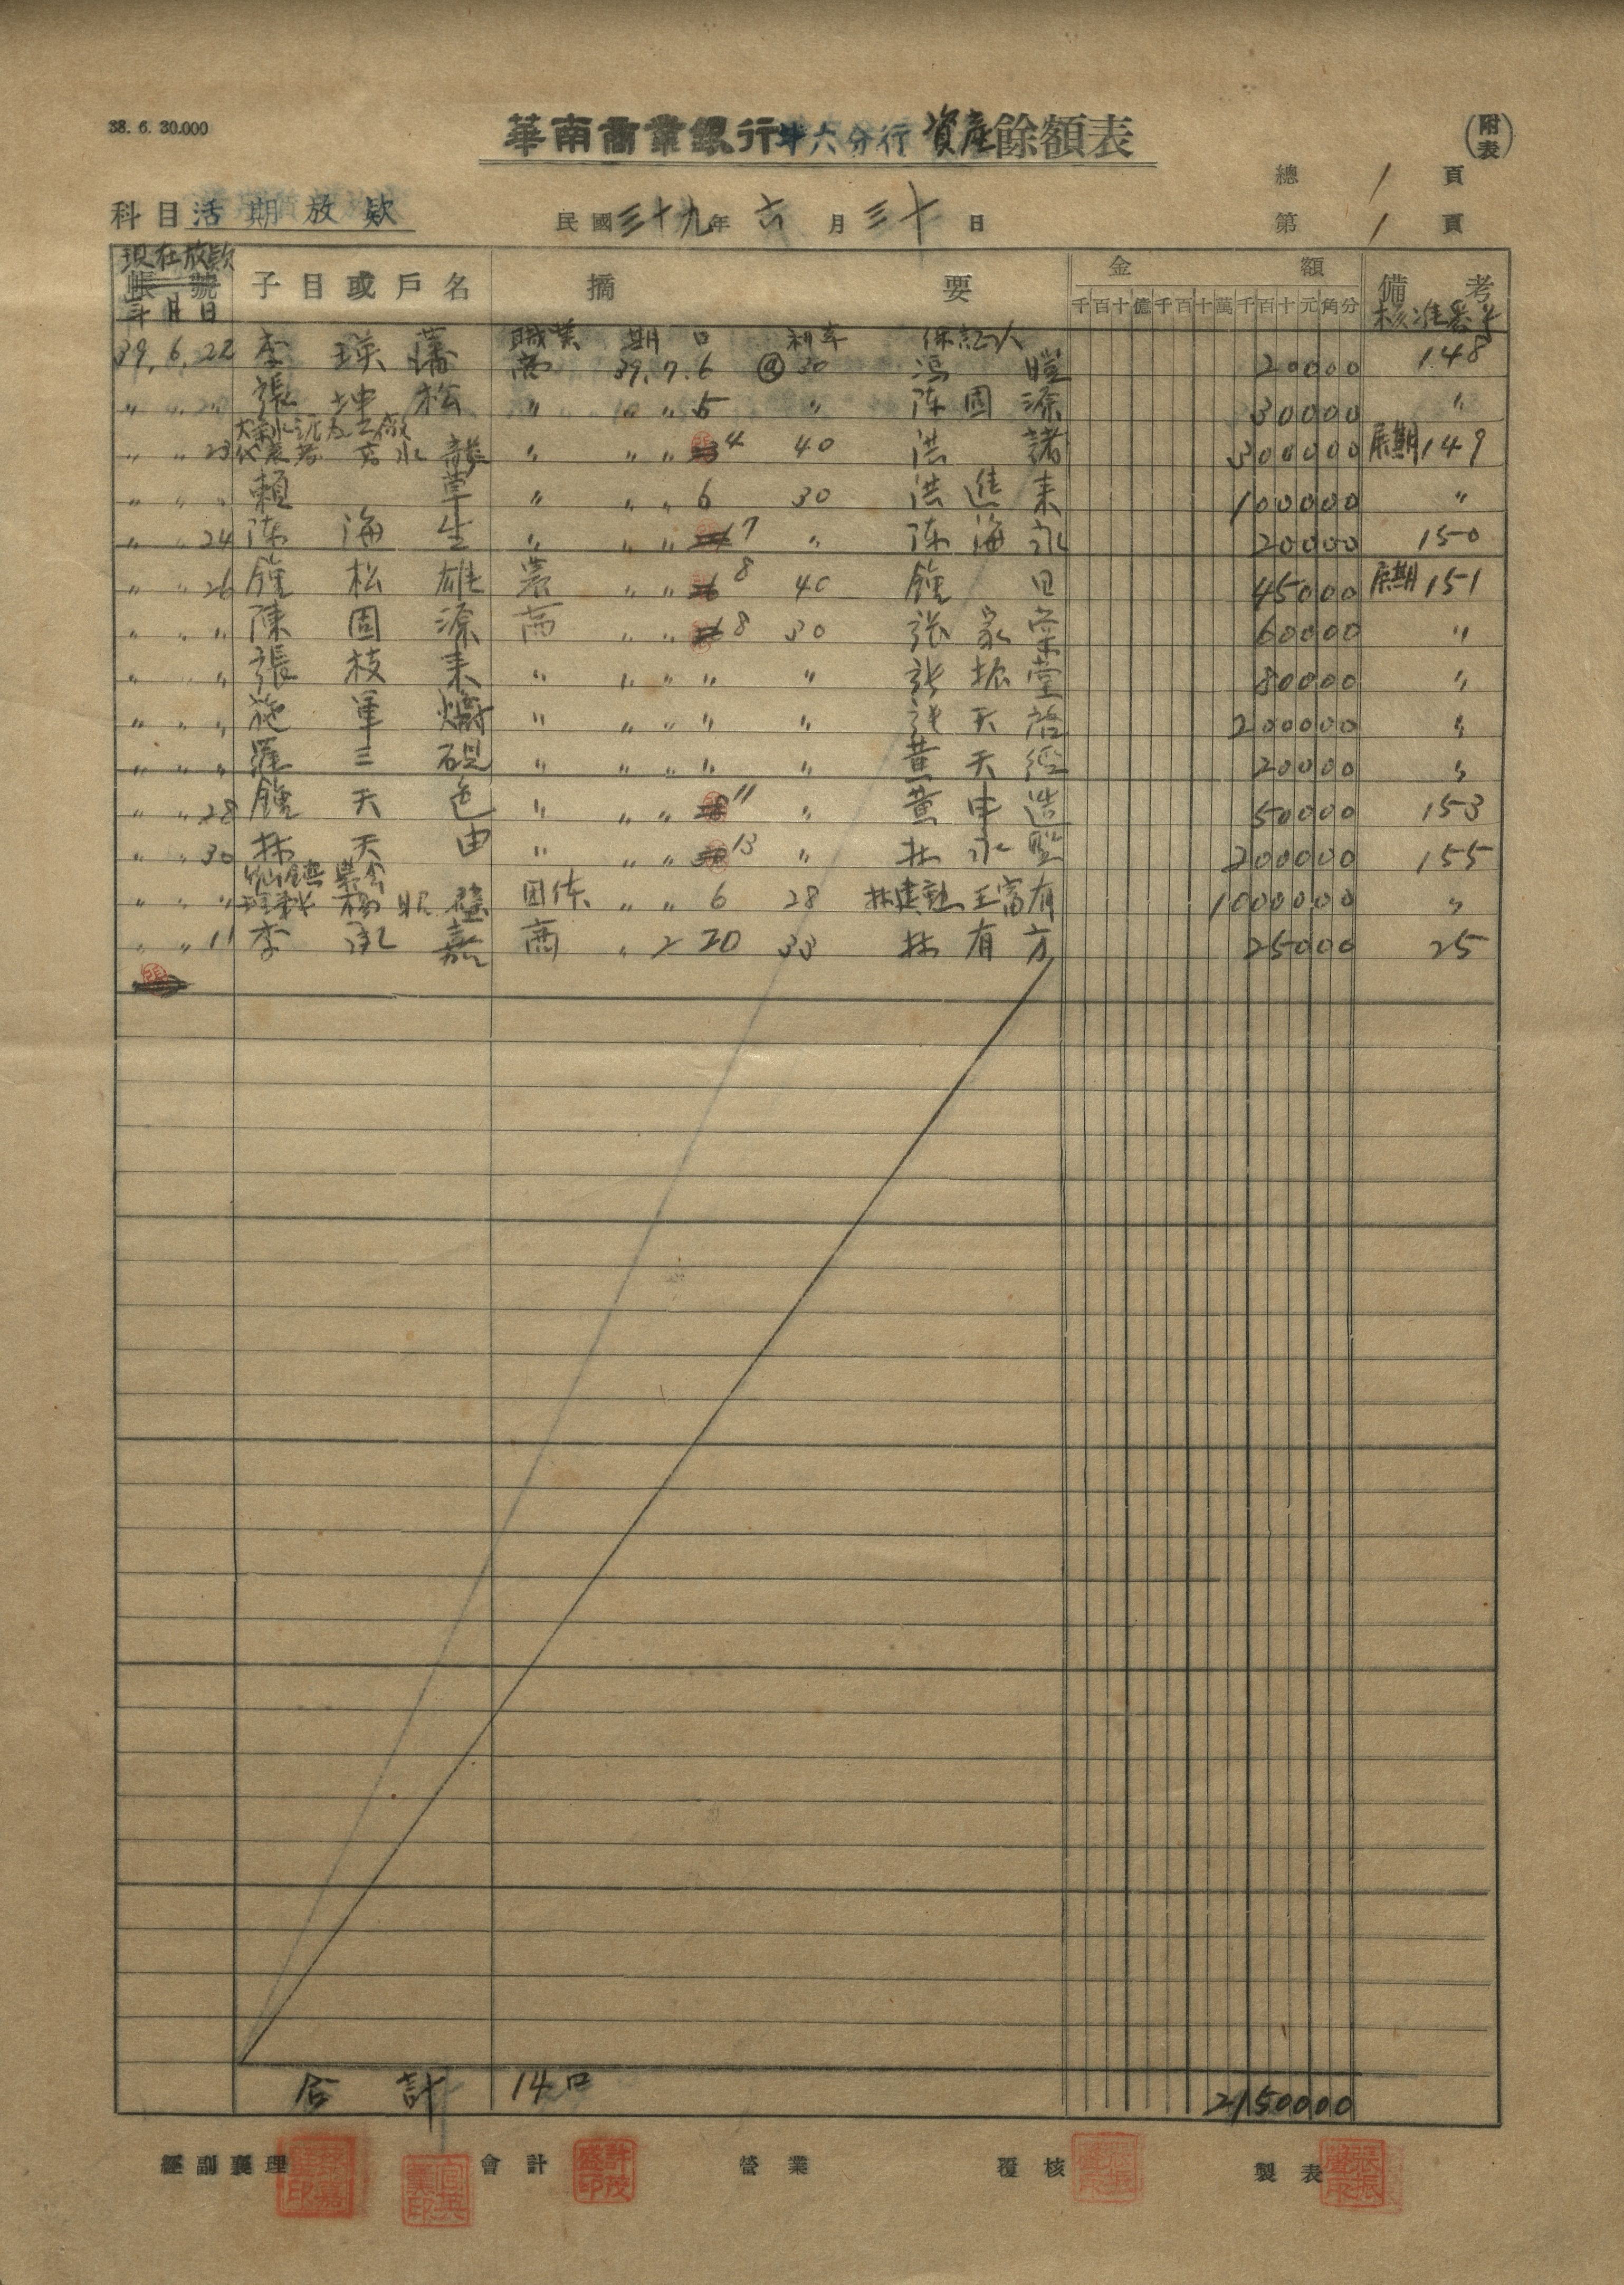 38. 6. 30.000
華南商業銀行 斗六分行 資產餘額表
(附表)
總 1 頁
科目 活期放款 民國三十九年 六 月 三十 日 第 1 頁
現在放款 帳號 子目或戶名 摘 要 金 額 備 考
年月日 千百十億千百十萬千百十元角分 核准番号
職業 期日 利率 保証人
39. 6. 22 李瑛 商 39. 7. 6 @ 30 馮 20000 148
〃 〃 張坤松 〃 〃 5 〃 陳固源 30000 〃
〃 〃 23 代表者 水龍 〃 〃 〃 4 40 洪諸 300000 展期149
〃 〃 〃 賴草 〃 〃 〃 6 30 洪進來 100000 〃
〃 〃 24 陳海生 〃 〃 〃 7 〃 陳海永 20000 150
〃 〃 26 鍾松雄 農 〃 〃 8 40 鍾 45000 展期151
〃 〃 〃 陳固源 商 〃 〃 8 30 張家榮 60000 〃
〃 〃 〃 張枝來 〃 〃 〃 〃 〃 張振堂 80000 〃
〃 〃 〃 施軍 〃 〃 〃 〃 〃 張天 200000 〃
〃 〃 〃 羅三硯 〃 〃 〃 〃 〃 黃天 20000 〃
〃 〃 28 鍾天色 〃 〃 〃 11 〃 黃申造 50000 153
〃 〃 30 林天由 〃 〃 〃 13 〃 林永 200000 155
農會
〃 〃 〃 理事長 楊 团体 〃 〃 6 28 林建 王富有 1000000 〃
〃 〃 11 李承嘉 商 〃 2 20 33 林有方 25000 25
合計 14口 2150000
經副襄理 會計 許茂盛印 營業 覆核 張振 製表 張振